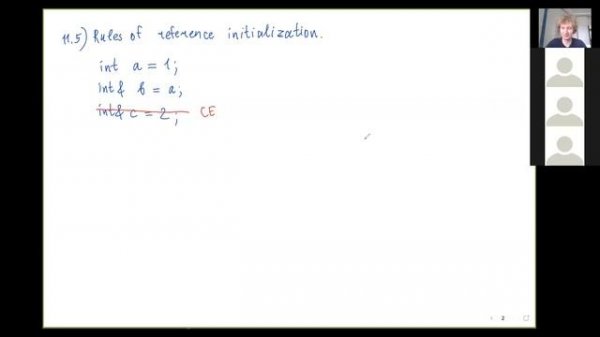 11.5) Rules of reference initialization.
int a = 1;
int& b = a;
int& c = 2; CE
2